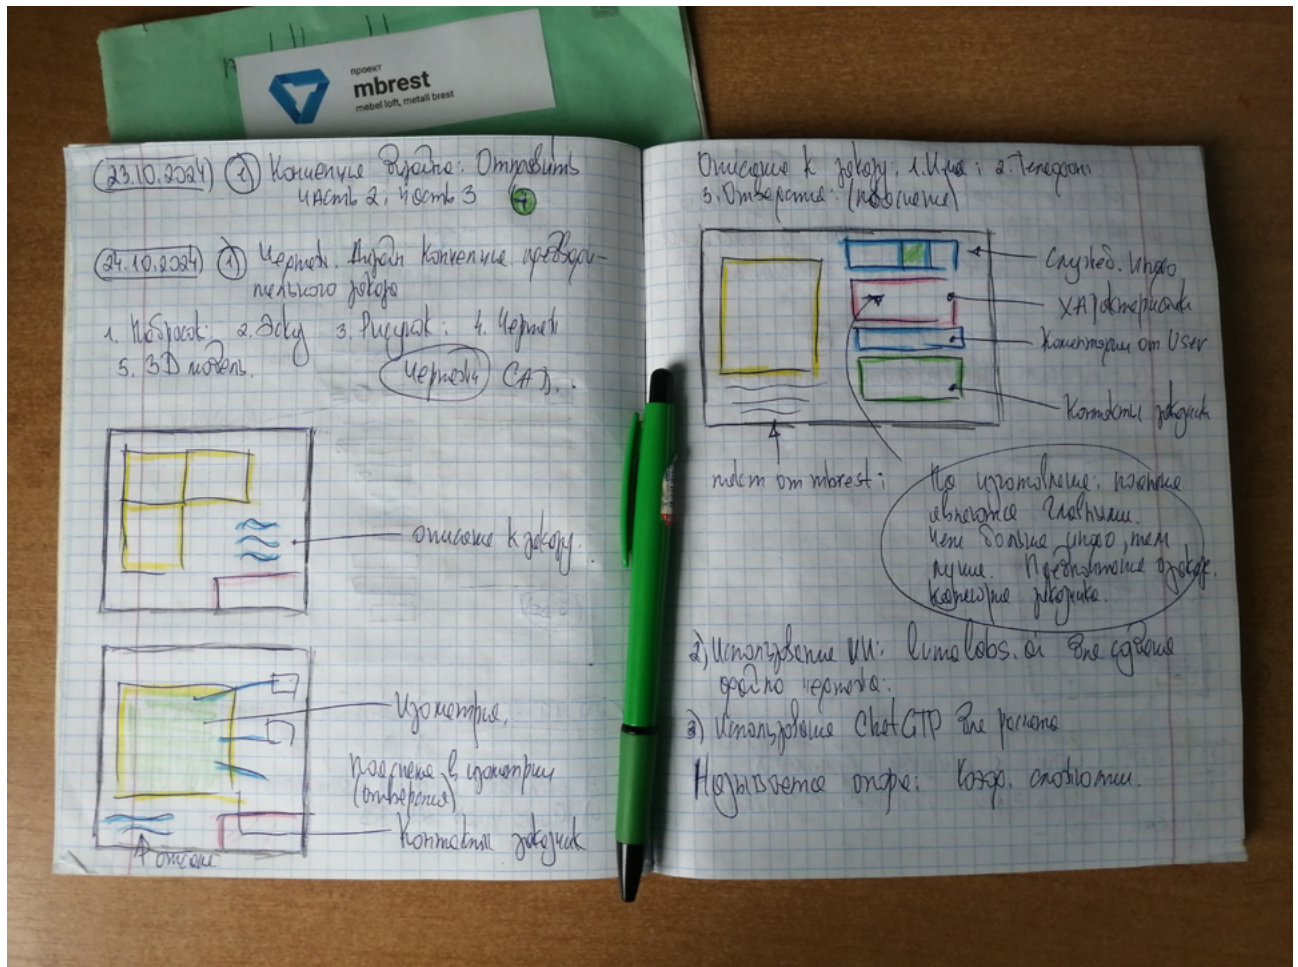 проект
mbrest
mebel loft, metall brest
23.10.2024 1) Концепция дизайна: Отправить
часть 2, часть 3
24.10.2024 1) Чертеж. Дизайн концепция предвари-
тельного заказа
1. Набросок; 2. Эскиз 3. Рисунок; 4. Чертеж
5. 3D модель.
Чертежи CAD...
описание к заказу.
Изометрия.
Пояснение в изометрии
(отверстия)
Контакты заказчик
описание
Описание к заказу; 1. Имя; 2. Телефон;
3. Отверстия: (пояснение)
Служеб. инфо
Характеристики
Коментарии от User
Контакты заказчик
текст от mbrest:
На изготовление; поэтому
являются главными.
Чем больше инфо, тем
лучше. Предпочтение
заказчика.
2) Использование ИИ: lumalabs.ai для создания
файла чертежа.
3) Использование ChatGTP для расчета
Называется опора: Коэф. сложности.